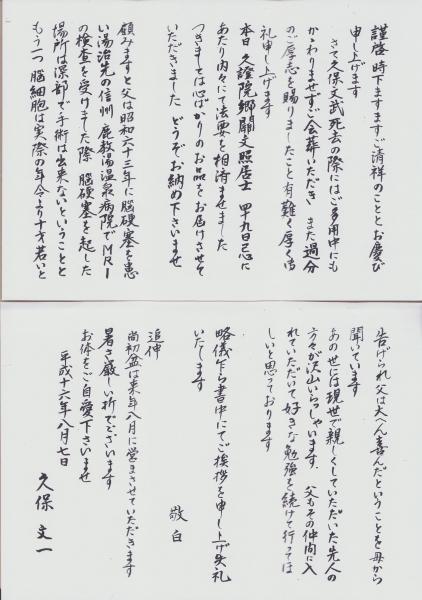 謹啓 時下ますますご清祥のこととお慶び
申し上げます
さて久保文武死去の際にはご多用中にも
かゝわりませずご会葬いただき また過分
のご厚志を賜りましたこと有難く厚く御
礼申し上げます
本日 久證院郷關文照居士 四十九日忌に
あたり内々にて法要を相済ませました
つきましては心ばかりのお品をお届けさせて
いただきました どうぞお納め下さいませ
顧みますと父は昭和六十三年に脳硬塞を患
い湯治先の信州 鹿教湯温泉病院でMRI
の検査を受けました際 脳硬塞を起した
場所は深部で手術は出来ないということと
もう一つ 脳細胞は実際の年令より十才若いと
告げられ父は大へん喜んだということを母から
聞いています
あの世には現世で親しくしていただいた先人の
方々が沢山いらっしゃいます 父もその仲間に入
れていただいて好きな勉強を続けて行ってほ
しいと思っております
略儀乍ら書中にてご挨拶を申し上げ失礼
いたします
敬白
追伸
尚初盆は来年八月に営まさせていただきます
暑さ厳しい折でございます
お体をご自愛下さいませ
平成十六年八月七日
久保文一